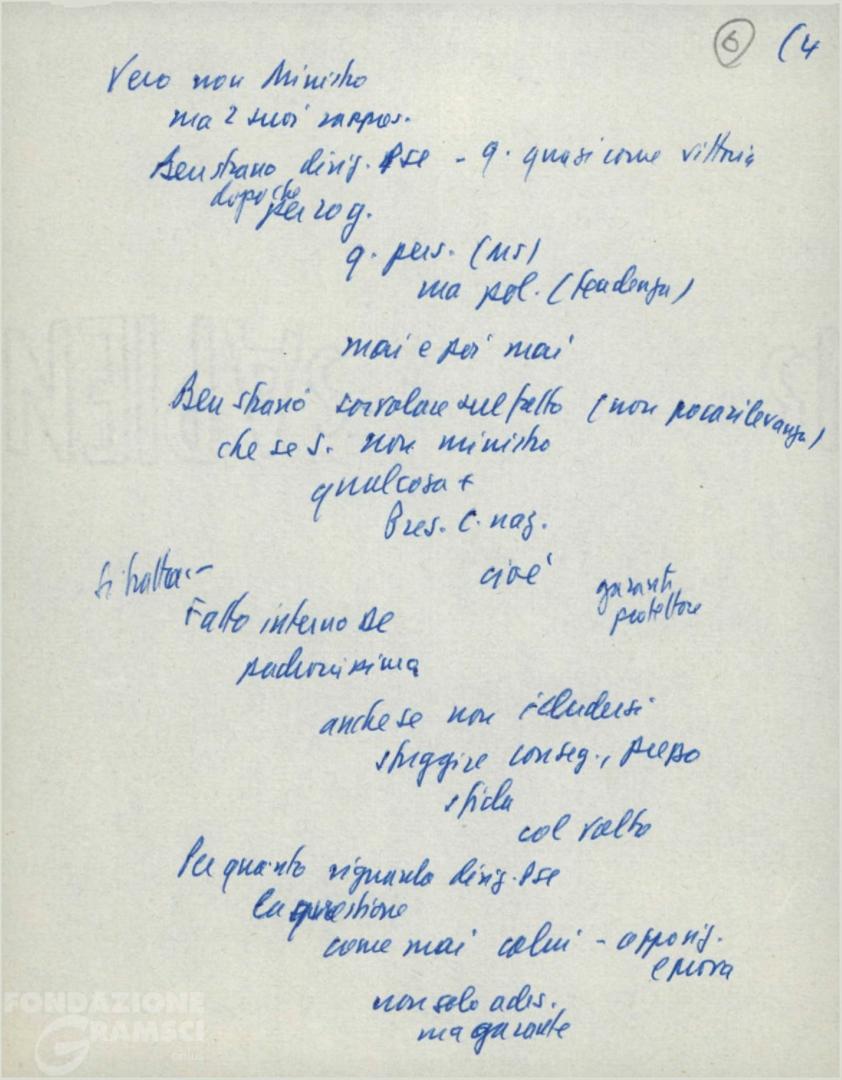 6 (4
Vero non Ministro
ma 2 suoi rappres.
Ben strano dirig. Pse - q. quasi come vittoria
dopo che
per 20 g.
q. pers. (MS)
ma pol. (tendenza)
mai e poi mai
Ben strano sorvolare sul fatto (non poca rilevanza)
che se S. non ministro
qualcosa +
Pres. C. naz.
cioè
garante
protettore
Si tratta:-
Fatto interno De
padronissima
anche se non illudersi
sfuggire conseg.,
sfida
col volto
Per quanto riguarda dirig. Pse
la questione
come mai colui -
e prova
non solo ades.
ma garante
FONDAZIONE
GRAMSCI